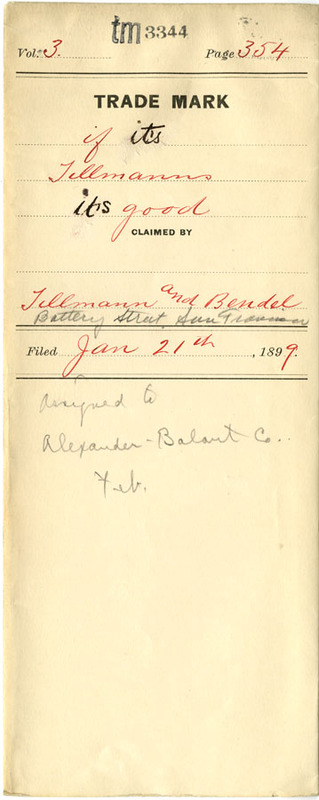 tm 3344
Vol. 3. Page 354
TRADE MARK
if it's
Tillmanns
it's good
CLAIMED BY
Tillmann and Bendel
Battery Street, San Francisco
Filed Jan 21th, 1899.
Assigned to
Alexander-Balart Co..
Feb.